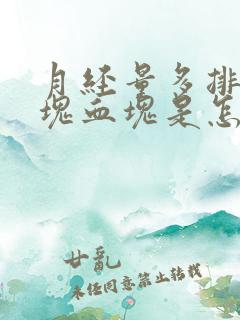 月经量多排
块血块是怎
廿乱
未经同意禁止转载